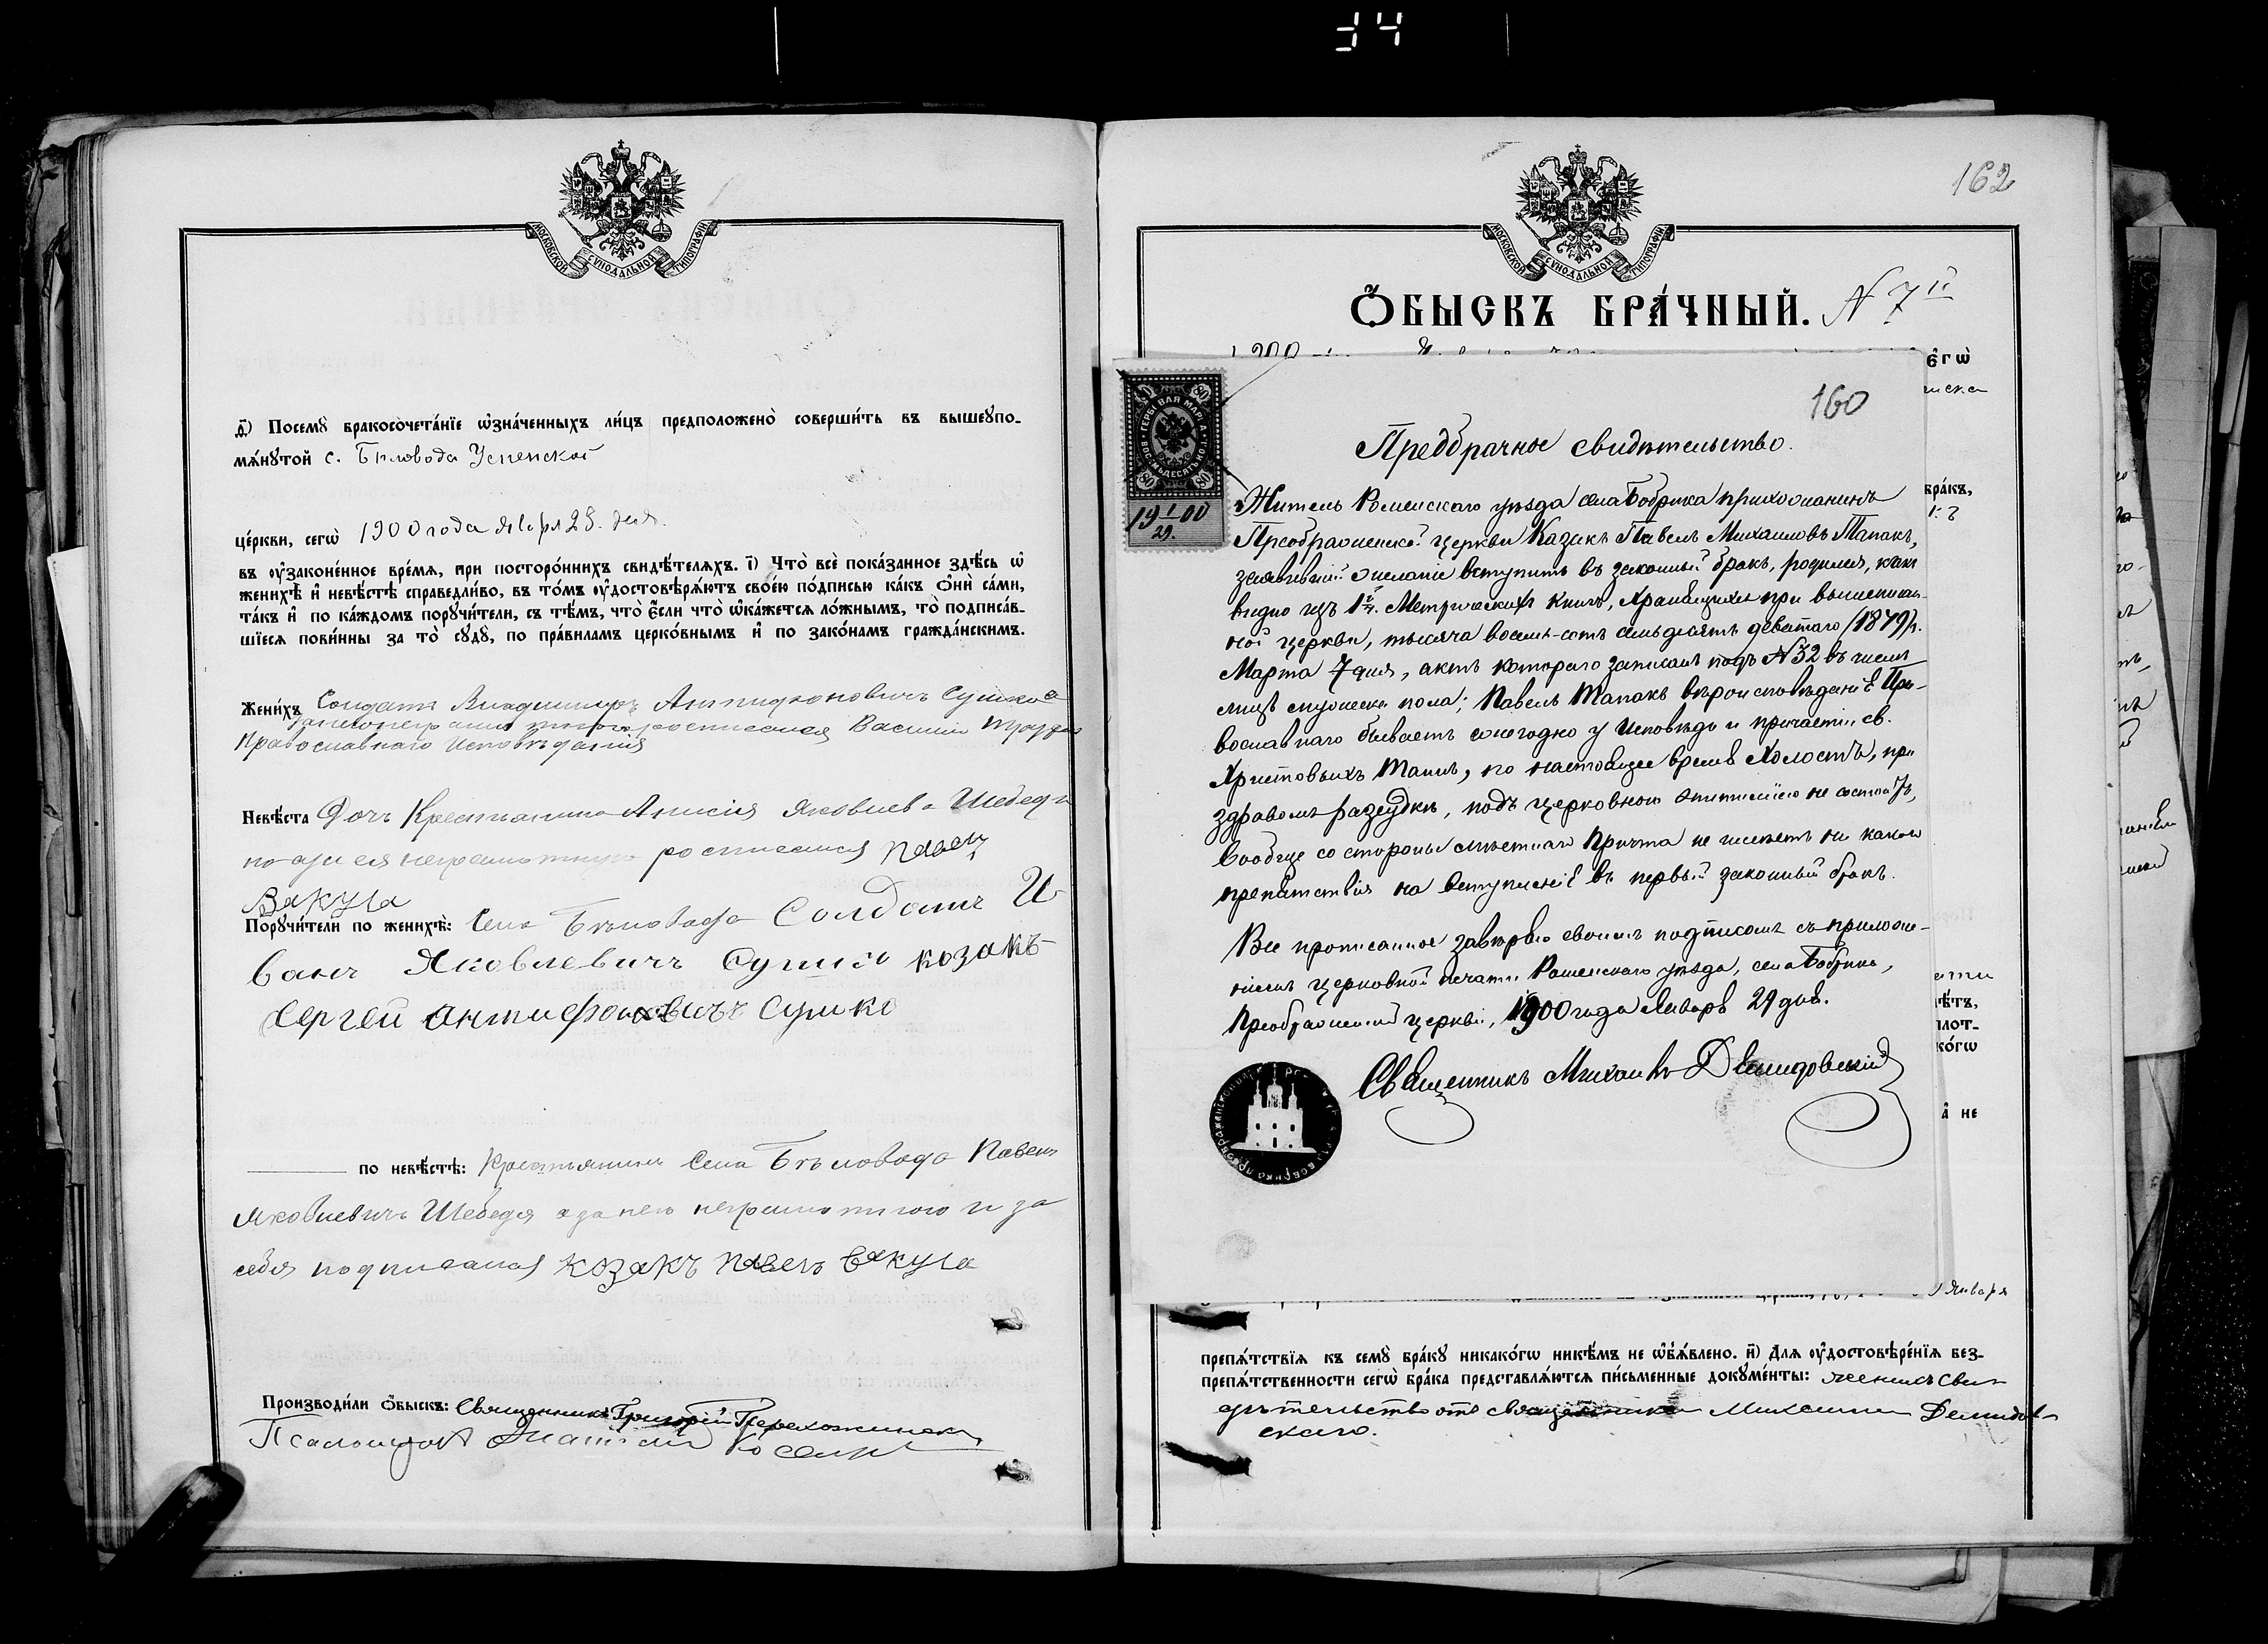 МОСКОВСКОЙ СУНОДАЛЬНОЙ ТИПОГРАФІИ
ѳ҃) Посемꙋ̀ бракосочета́нїе ѡ҆зна́ченныхъ ли́цъ предположено̀ соверши́ть въ вышеꙋпо-
мѧ́нꙋтой с. Біловода Успенской
це́ркви, сегѡ̀ 1900 года Янвря 28. дня.
въ ᲂу҆зако́ненное вре́мѧ, при посторо́ннихъ свидѣ́телѧхъ. і҃) Что̀ всѐ пока́занное здѣ́сь ѡ҆
женихѣ̀ и҆ невѣ́стѣ справедли́во, въ то́мъ ᲂу҆достовѣрѧ́ютъ свое́ю по́дписью ка́къ ѻ҆нѝ са́ми,
та́къ и҆ по ка́ждомъ порꙋчи́тели, съ тѣ́мъ, что̀ є҆́сли что̀ ѡ҆ка́жетсѧ ло́жнымъ, то̀ подписа́в-
шїесѧ пови́нны за то̀ сꙋдꙋ̀, по пра́виламъ церко́внымъ и҆ по зако́намъ гражда́нскимъ.
Жени́хъ Солдатъ Владимиръ Антидконовичъ Сушко а
росписался Василий
Православнаго Исповѣданія
Невѣ́ста Дочь Крестьянина Анисія Яковлева Шебедя
а за ея неграмотную росписался Павелъ
Вакула
Порꙋчи́тели по женихѣ̀: Села Бѣловода Солдатъ И
ванъ Яковлевичъ Сушко козакъ
Сергей Антифоновичъ Сушко
по невѣ́стѣ: Крестьянинъ Села Бѣловода Павелъ
Яковлевичъ Шебедя а за него неграмотного и за
себя подписался козакъ Павелъ Вакула
Производи́ли ѻ҆́быскъ: Священникъ Григорій
Псаломщикъ
162
МОСКОВСКОЙ СУНОДАЛЬНОЙ ТИПОГРАФІИ
Ѻ҆́БЫСКЪ БРА́ЧНЫЙ. N 7й
є҆гѡ̀
160
Предбрачное свидѣтельство.
бра́къ,
ГЕРБОВАЯ МАРКА
ВОСЕМЬДЕСЯТЪ КОП
80 80
19 1/29. 00
Житель Роменскаго уѣзда села Бобрика прихожанинъ
Преображенской церкви Казакъ Павелъ Михаиловъ Тапакъ,
заявившій желаніе вступить въ законный бракъ, родился, какъ
видно изъ 1й ч. Метрическихъ книгъ, хранящихся при вышеписан-
ной церкви, тысяча восемь-сотъ семьдесятъ девятаго (1879) г.
Марта 7 дня, актъ котораго записанъ подъ N 32 въ числѣ
лицъ мужеска пола; Павелъ Тапакъ вѣроисповѣданіе Пра-
вославнаго бываетъ ежегодно у Исповѣди и причастіи св.
Христовыхъ Таинъ, по настоящее время Холостъ, при
здравомъ разсудкѣ, подъ церковною эпитиміею не состоитъ,
вообще со стороны мѣстнаго Причта не имѣетъ ни какого
препятствія на вступленіе въ первый законный бракъ.
Все прописанное завѣряю своимъ подписомъ съ приложе-
ніемъ церковной печати Роменскаго уѣзда, села Бобрика,
Преображенской церкви, 1900 года Январь 29 дня.
Священникъ Михаилъ Демидовскій
лѣ́тъ,
плот-
ко́гѡ
а҆̀ не
Января
препѧ́тствїѧ къ семꙋ̀ бра́кꙋ никако́гѡ никѣ́мъ не ѡ҆б̾ѧ́влено. и҃) Длѧ ᲂу҆достовѣре́нїѧ без-
препѧ́тственности сегѡ̀ бра́ка представлѧ́ютсѧ пи́сьменные докꙋме́нты: женихъ сви-
дѣтельство отъ священника Михаила Демидов-
скаго.